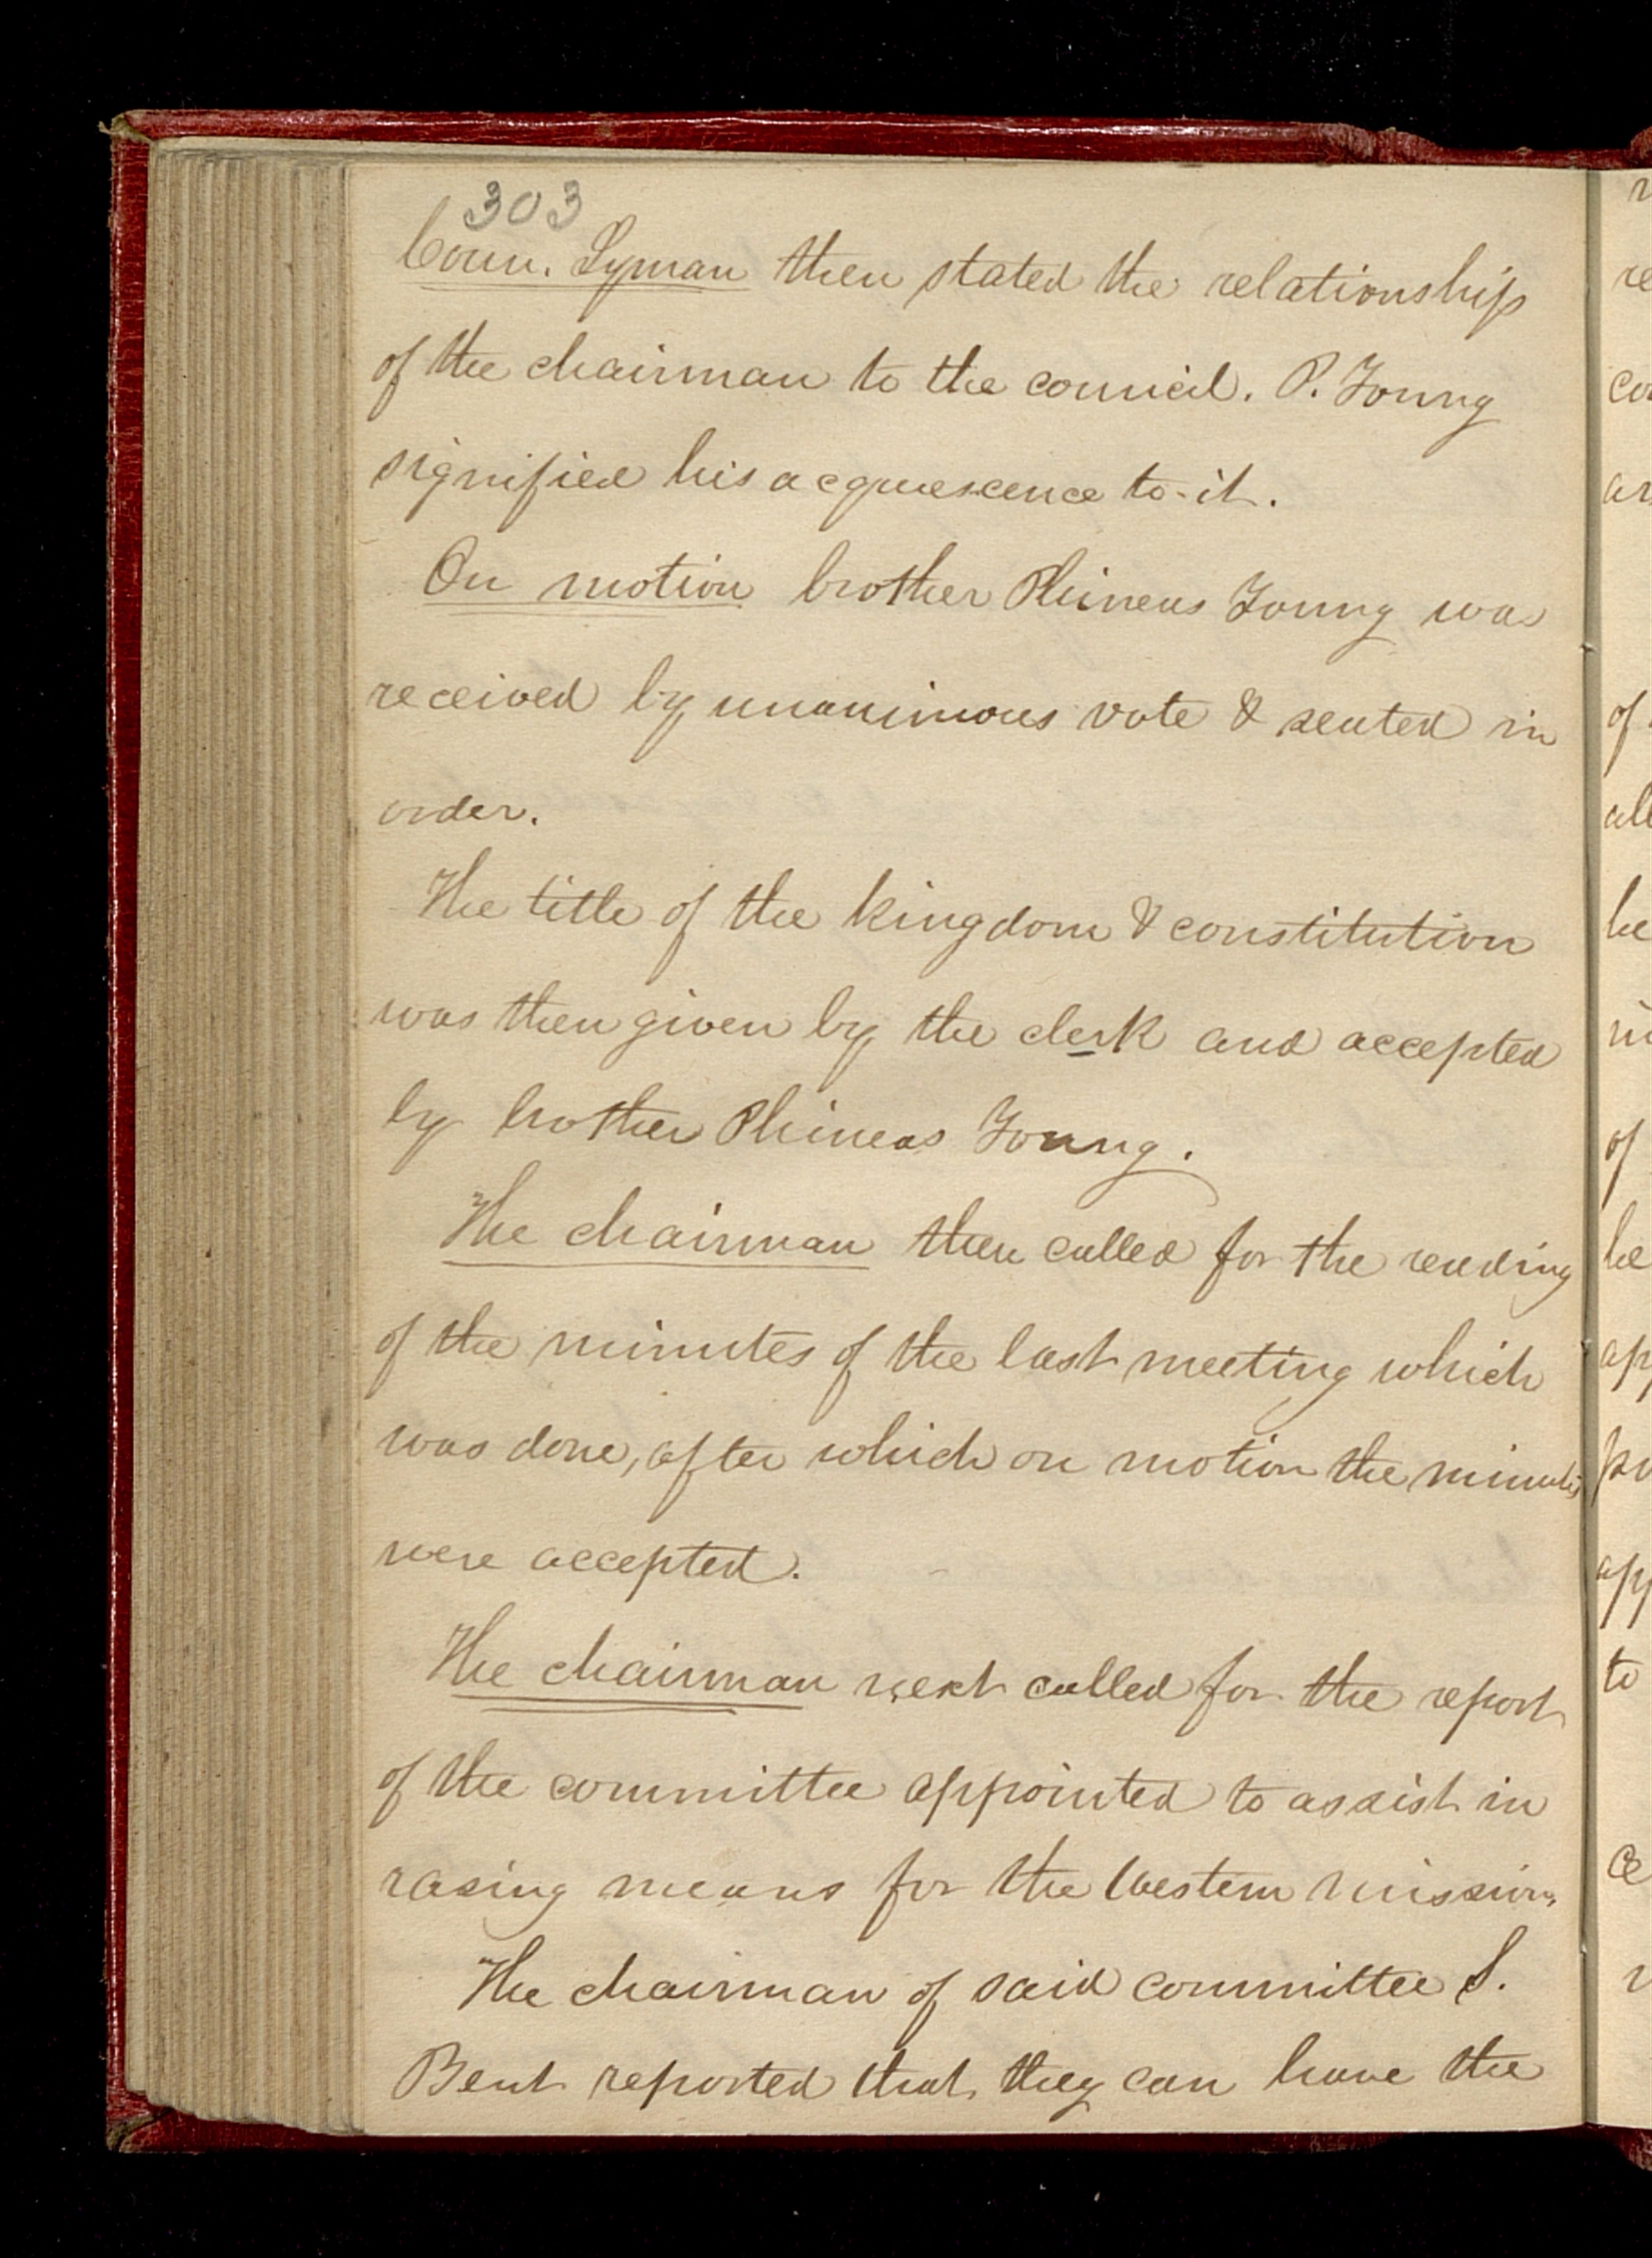 303
Coun. Lyman then stated the relationship
of the chairman to the council. P. Young
signified his acquiescence to it.
On motion brother Phineas Young was
received by unanimous vote & seated in
order.
The title of the kingdom & constitution
was then given by the clerk and accepted
by brother Phineas Young.
The chairman then called for the reading
of the minutes of the last meeting which
was done, after which on motion the minutes
were accepted.
The chairman next called for the report
of the committee appointed to assist in
rasing means for the Western mission,
The chairman of said committee S.
Bent reported that they can have the